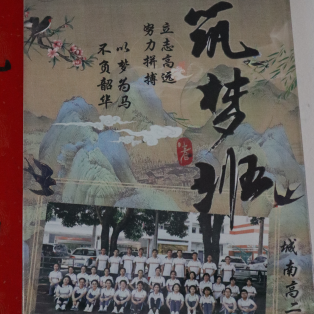 筑梦班
立志高远
努力拼搏
以梦为马
不负韶华
城南高二